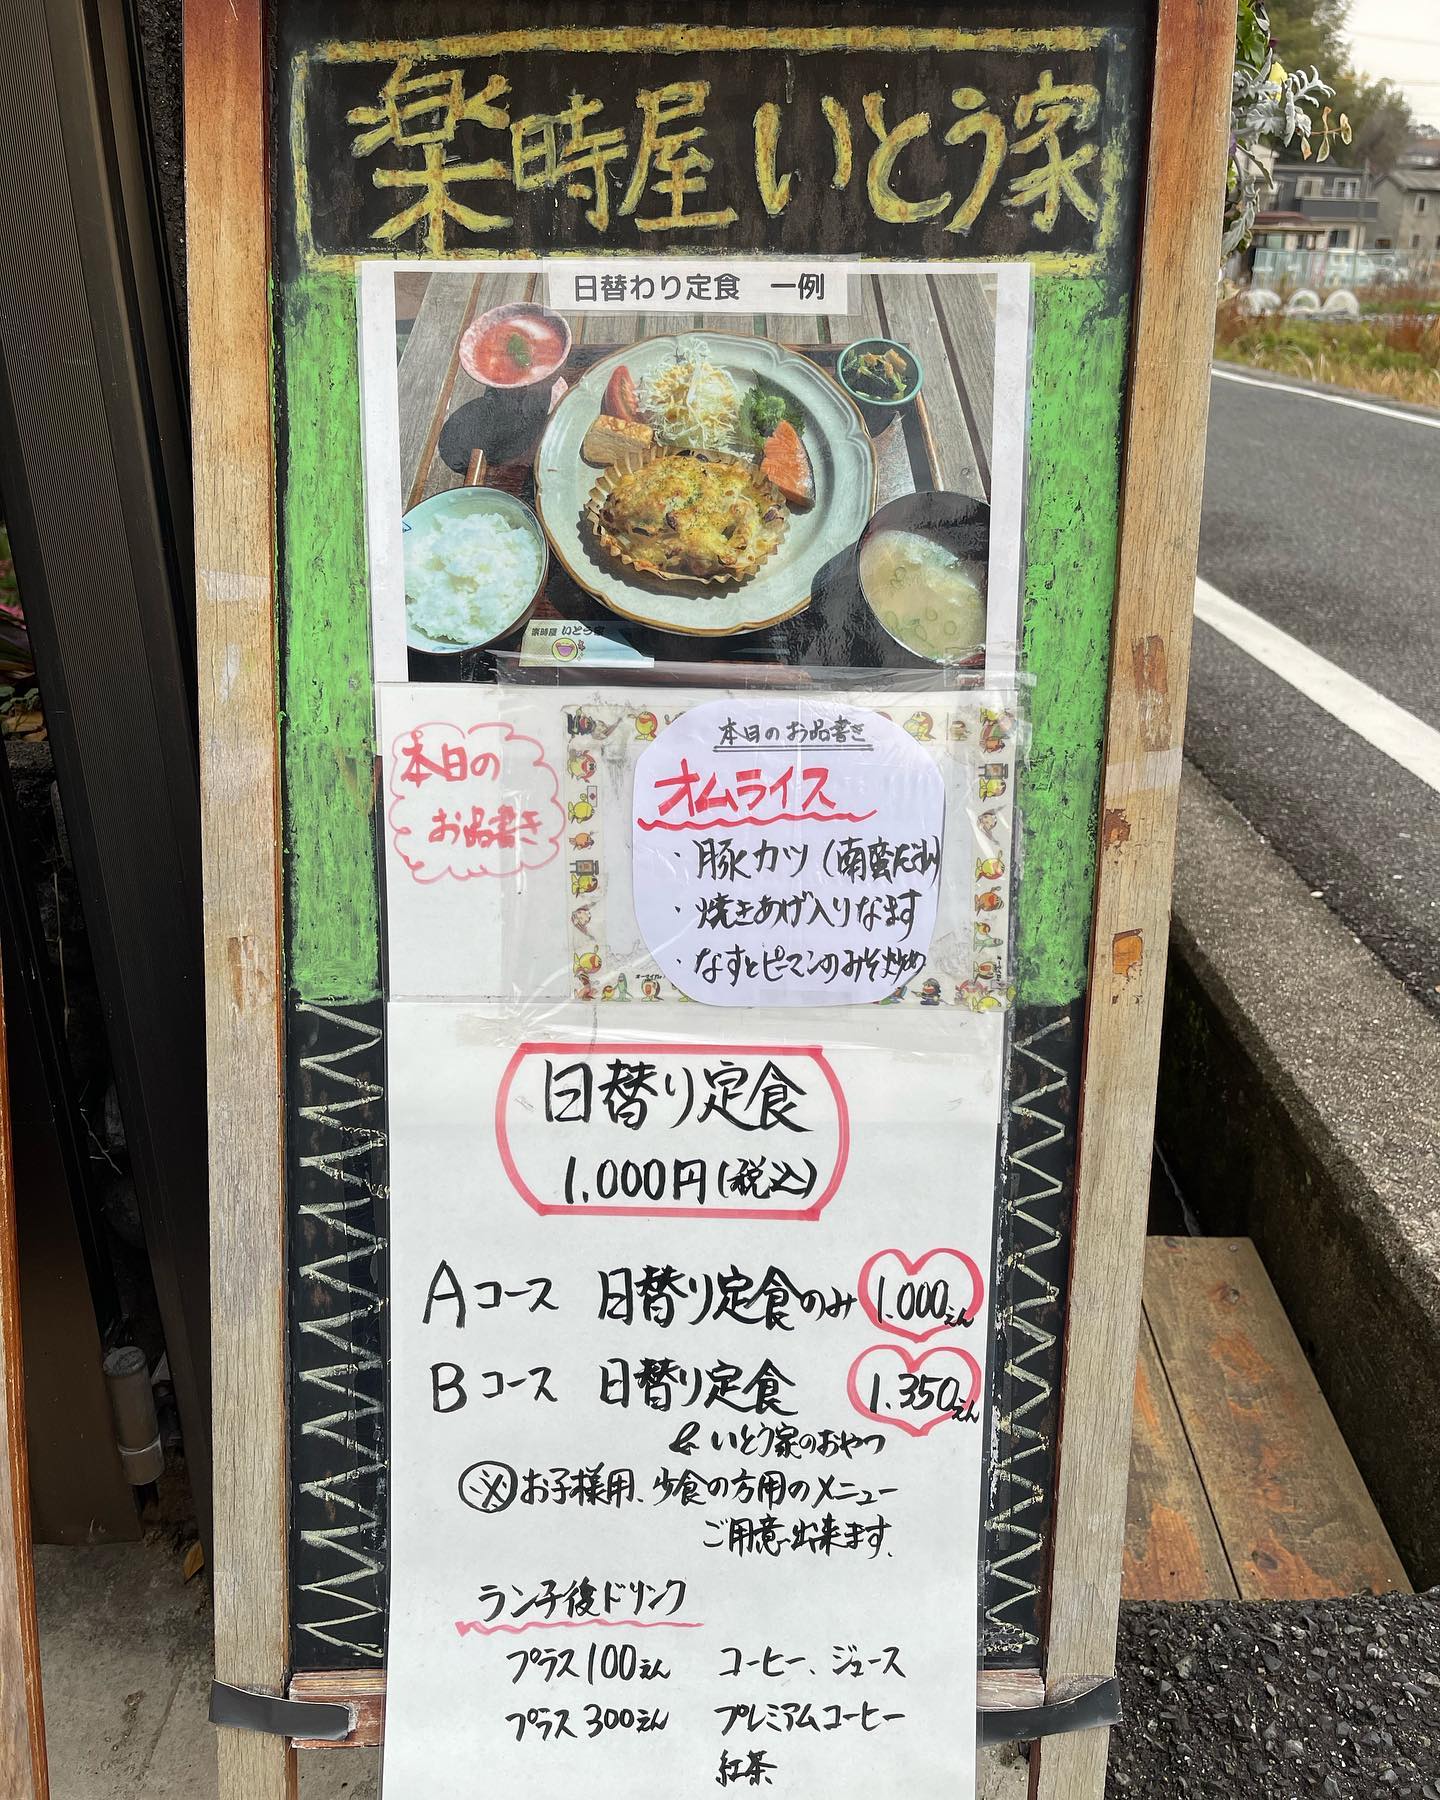 楽時屋 いとう家
日替わり定食 一例
楽時屋 いとう家
本日の
お品書き
本日のお品書き
オムライス
・豚カツ(南蛮だれ)
・焼きあげ入りなます
・なすとピーマンのみそ炒め
日替り定食
1,000円(税込)
Aコース 日替り定食のみ 1.000えん
Bコース 日替り定食 1.350えん
& いとう家のおやつ
※お子様用、少食の方用のメニュー
ご用意出来ます、
ランチ後ドリンク
プラス100えん コーヒー、ジュース
プラス300えん プレミアムコーヒー
紅茶